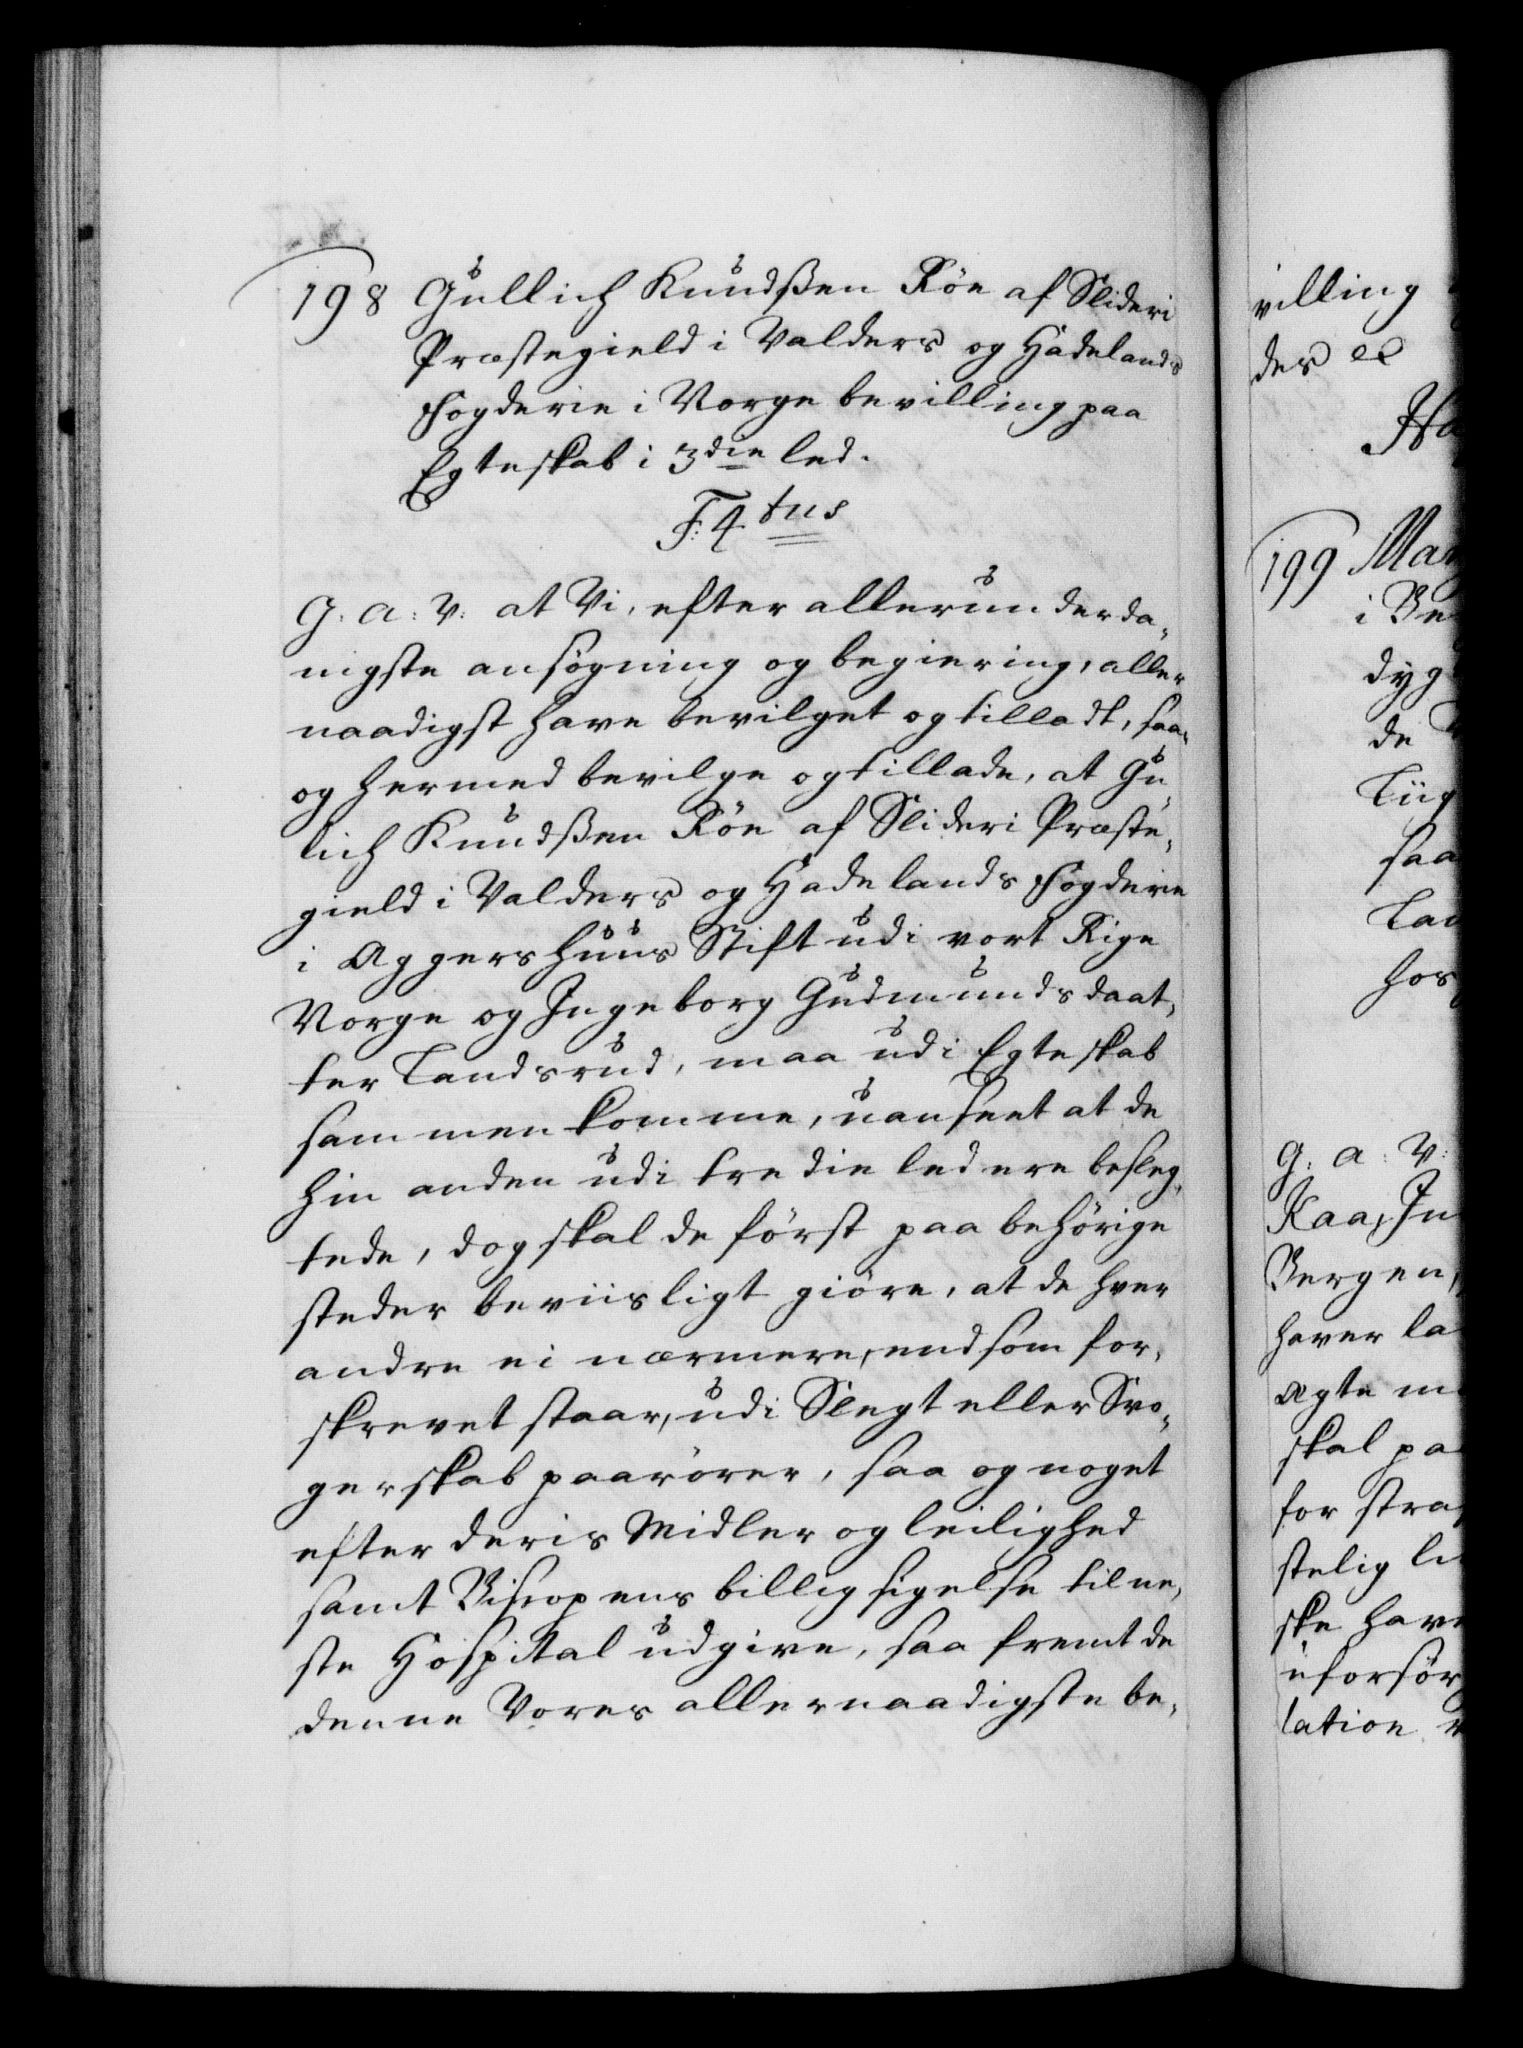 198 Gullich Knudßen Röe af Slideri
Præstegield i Valders og Hadelands
Fogderie i Norge bevilling paa
Egteskab i 3die led.
F: 4tus
G: A: V: at Vi, efter allerunderda-
nigste ansøgning og begiering, aller
naadigst have bevilget og tilladt, saa-
og hermed bevilge og tillade, at Gu-
lich Knudßen Röe af Slideri Præste-
gield i Valders og Hadelands Fogderie
i Aggershuus Stift udi vort Rige
Norge og Ingeborg Gudmundsdaat-
ter Landsrud, maa udi Egteskab
sammenkomme, uanseet at de
hin anden udi tredie led ere besleg-
tede, dog skal de först paa behörige
steder beviisligt giöre, at de hver
andre ei nærmere, end som for-
skrevet staar, udi Slegt eller Svo-
gerskab paarörer, saa og noget
efter deris Midler og leilighed
samt Biscopens billig sigelse til ne-
ste Hospital udgive, saa fremt de
denne Vores allernaadigste be-
villing
des etc
199 Mar
i Be
dyg
de
Liig
saa
Lav
hos
G: A: V:
Kaa, In
Bergen,
haver la
Ægte m
skal pa
for stra
stelig li
ske have
uforsör
lation